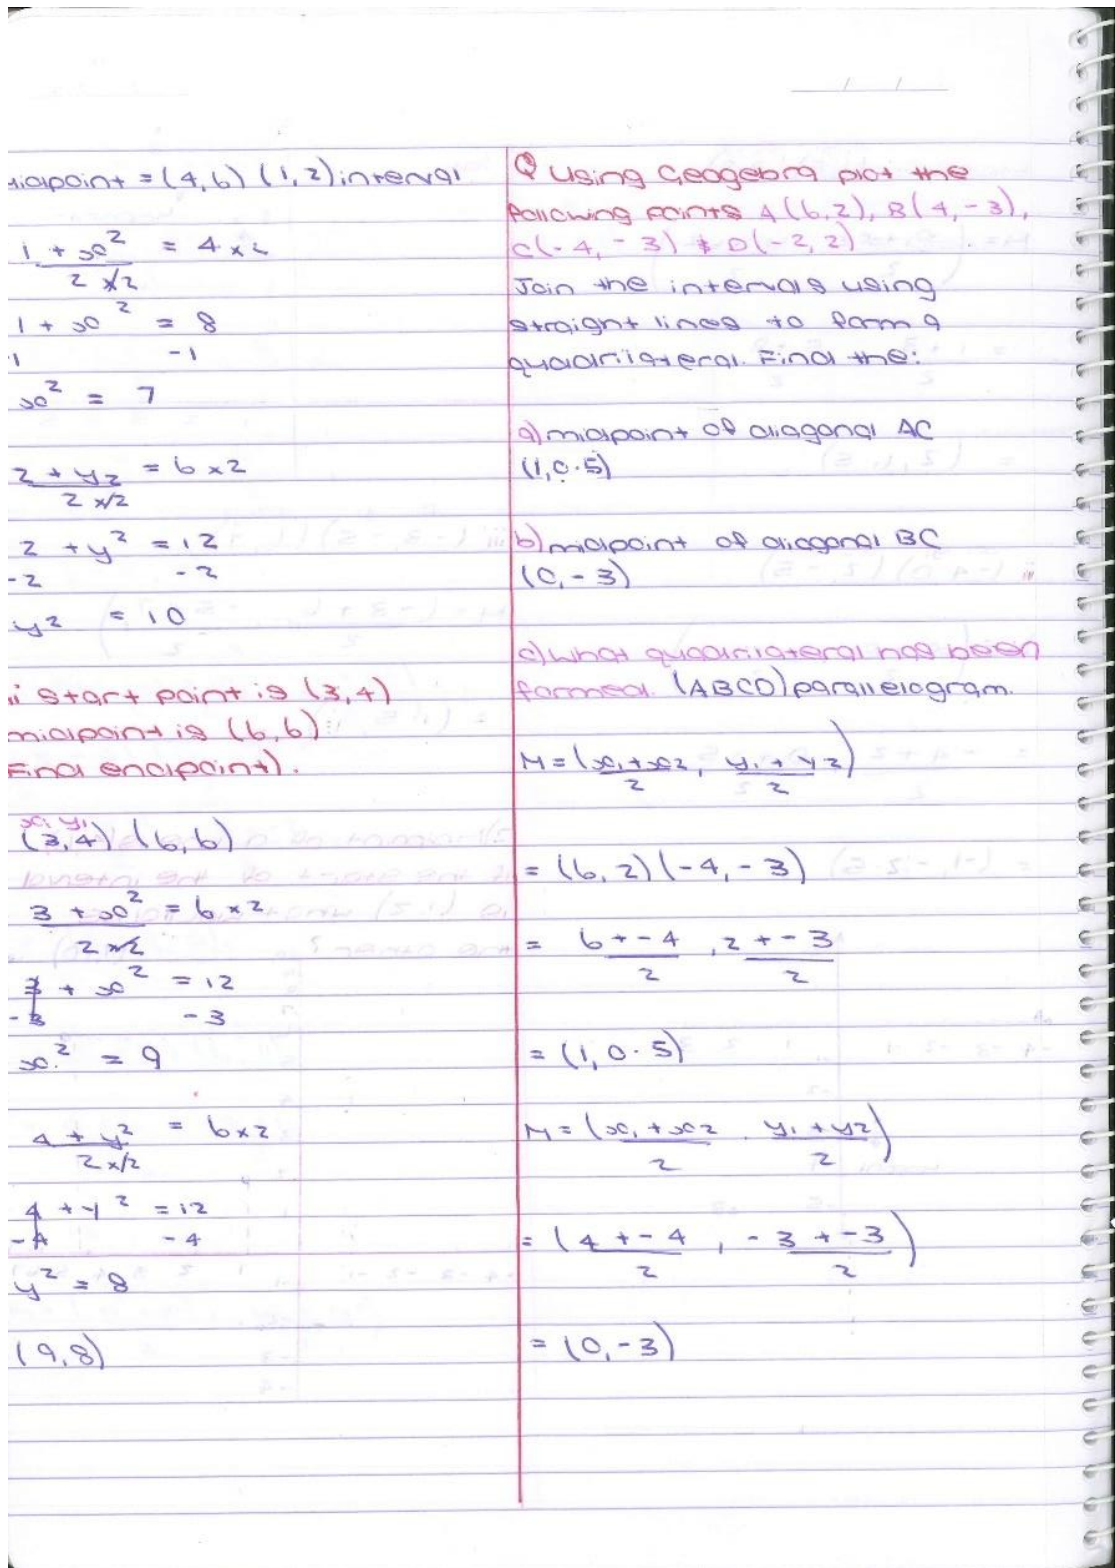 midpoint = (4,6) (1,2) interval
1 + x² = 4 x 2
2 x 2
1 + x² = 8
-1 -1
x² = 7
2 + y2 = 6 x 2
2 x 2
2 + y² = 12
-2 -2
y² = 10
ii start point is (3,4)
midpoint is (6,6)
Find endpoint).
x1 y1
(3,4) (6,6)
3 + x² = 6 x 2
2 x 2
3 + x² = 12
-3 -3
x² = 9
4 + y² = 6 x 2
2 x 2
4 + y² = 12
-4 -4
y² = 8
(9,8)
Q Using Geogebra plot the
following points A(6,2), B(4,-3),
C(-4,-3) & D(-2,2)
Join the intervals using
straight lines to form a
quadrilateral. Find the:
a) midpoint of diagonal AC
(1,0.5)
b) midpoint of diagonal BC
(0,-3)
c) what quadrilateral has been
formed. (ABCD) parallelogram.
M = (x1 + x2, y1 + y2)
2 2
= (6,2) (-4,-3)
= 6 + -4, 2 + -3
2 2
= (1,0.5)
M = (x1 + x2, y1 + y2)
2 2
= (4 + -4, -3 + -3)
2 2
= (0,-3)